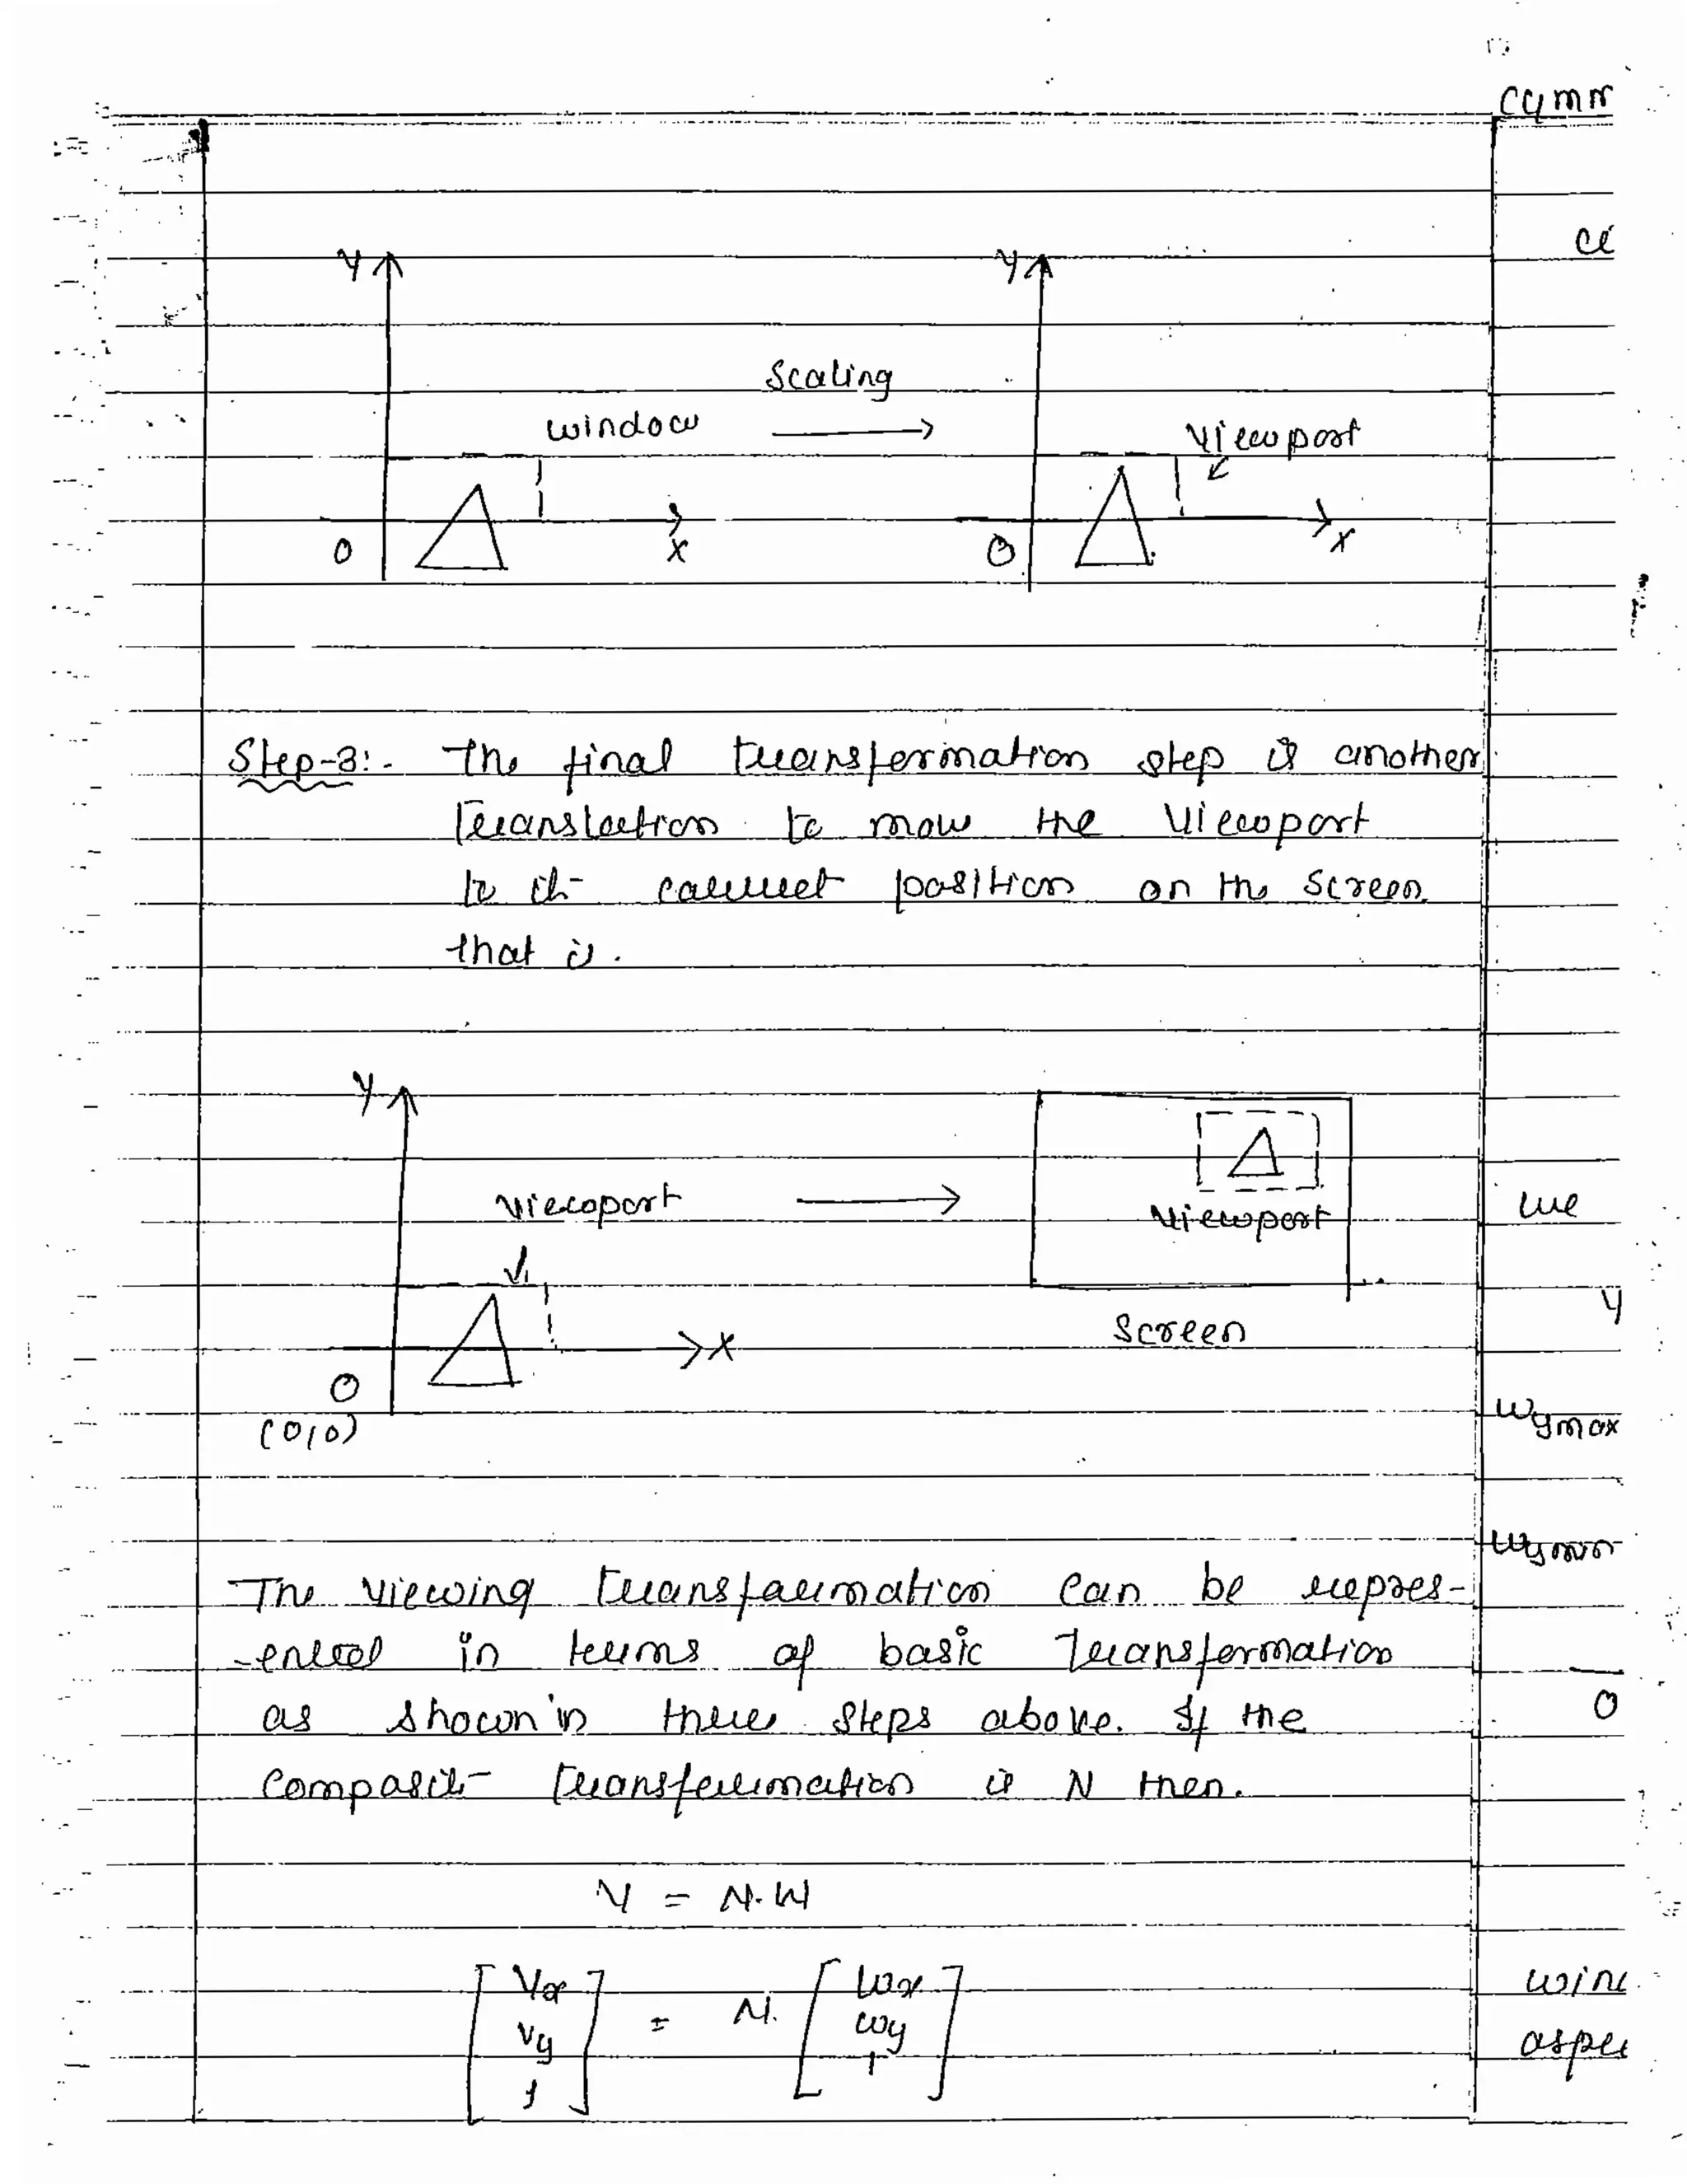 Cymn
Y
Y
Scaling
window
Viewport
O
X
O
X
Step-3:- The final transformation step is another
translation to move the Viewport
to it correct position on the screen
that is.
Y
Viewport
Viewport
we
Y
X
Screen
O
(0,0)
Wymax
Wymin
The viewing transformation can be repres-
-ented in terms of basic transformation
as shown in three steps above. If the
O
Composite transformation is N then.
V = N.W
Vx
Wx
Vy
=
N.
wy
1
1